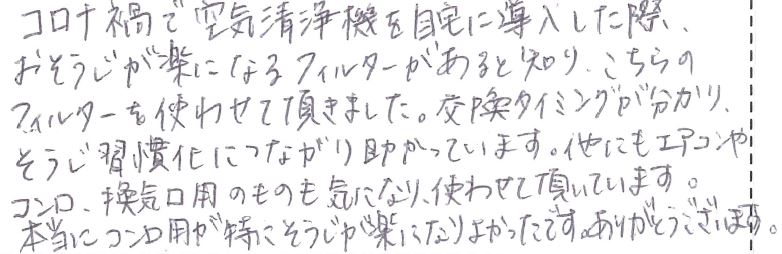 コロナ禍で空気清浄機を自宅に導入した際、
おそうじが楽になるフィルターがあると知り、こちらの
フィルターを使わせて頂きました。交換タイミングが分かり、
そうじ習慣化につながり助かっています。他にもエアコンや
コンロ、換気口用のものも気になり、使わせて頂いています。
本当にコンロ用が特にそうじが楽になりよかったです。ありがとうございます。